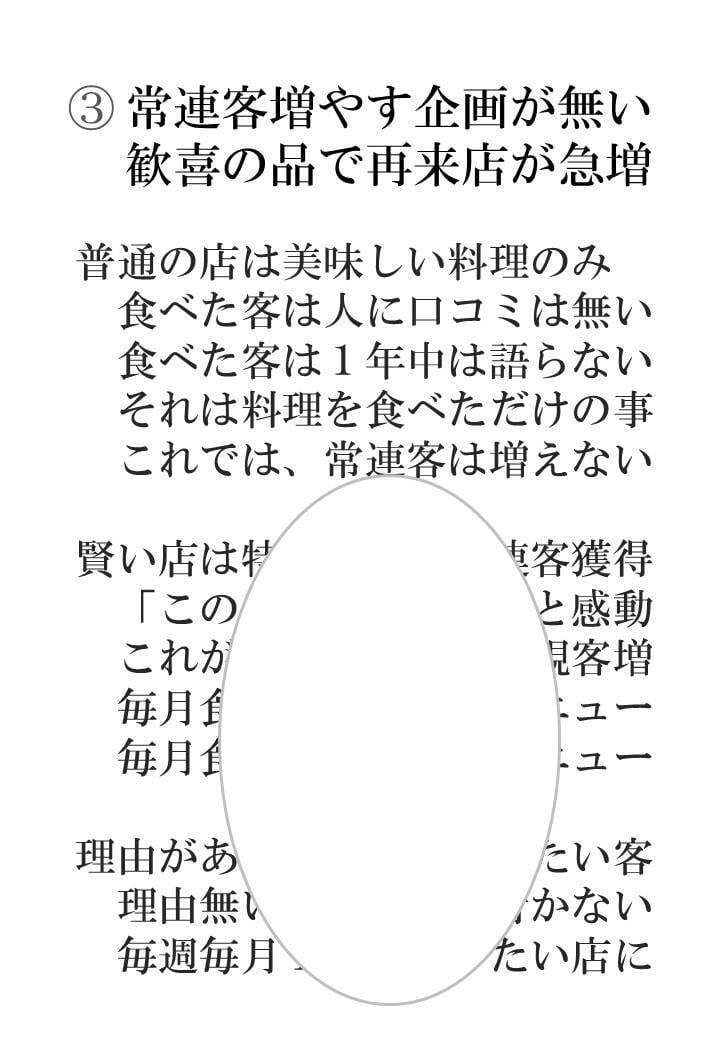 ③ 常連客増やす企画が無い
歓喜の品で再来店が急増
普通の店は美味しい料理のみ
食べた客は人に口コミは無い
食べた客は１年中は語らない
それは料理を食べただけの事
これでは、常連客は増えない
賢い店は 客獲得
「この と感動
これが 客増
毎月 ュー
毎月 ュー
理由があ たい客
理由無い かない
毎週毎月 たい店に